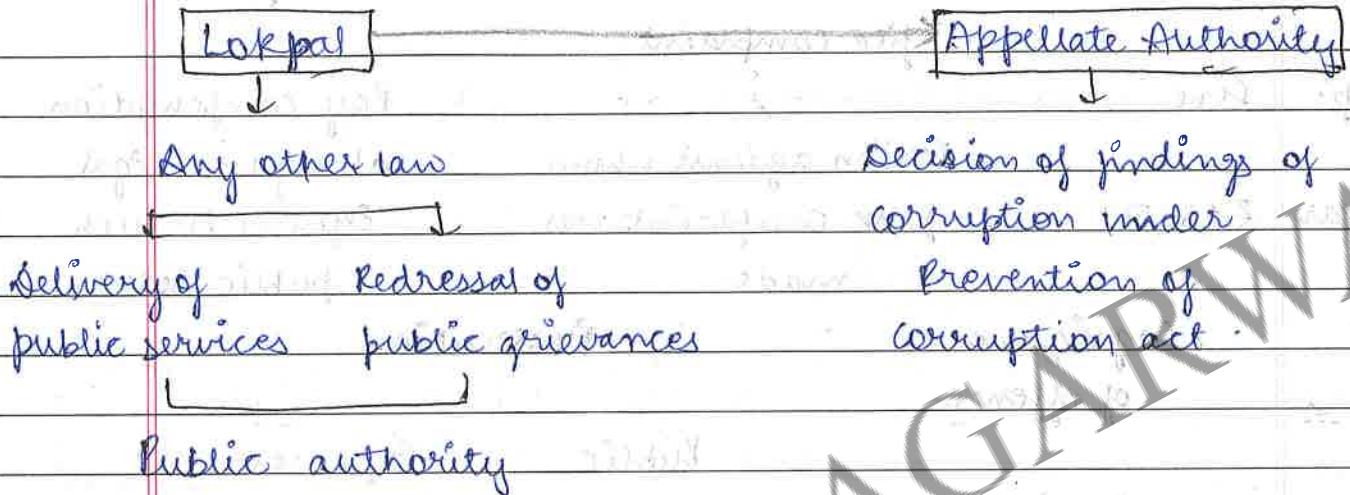 Lokpal
Appellate Authority
Any other law
Delivery of
public services
Redressal of
public grievances
Public authority
Decision of findings of
corruption under
Prevention of
corruption act.
AGARWA